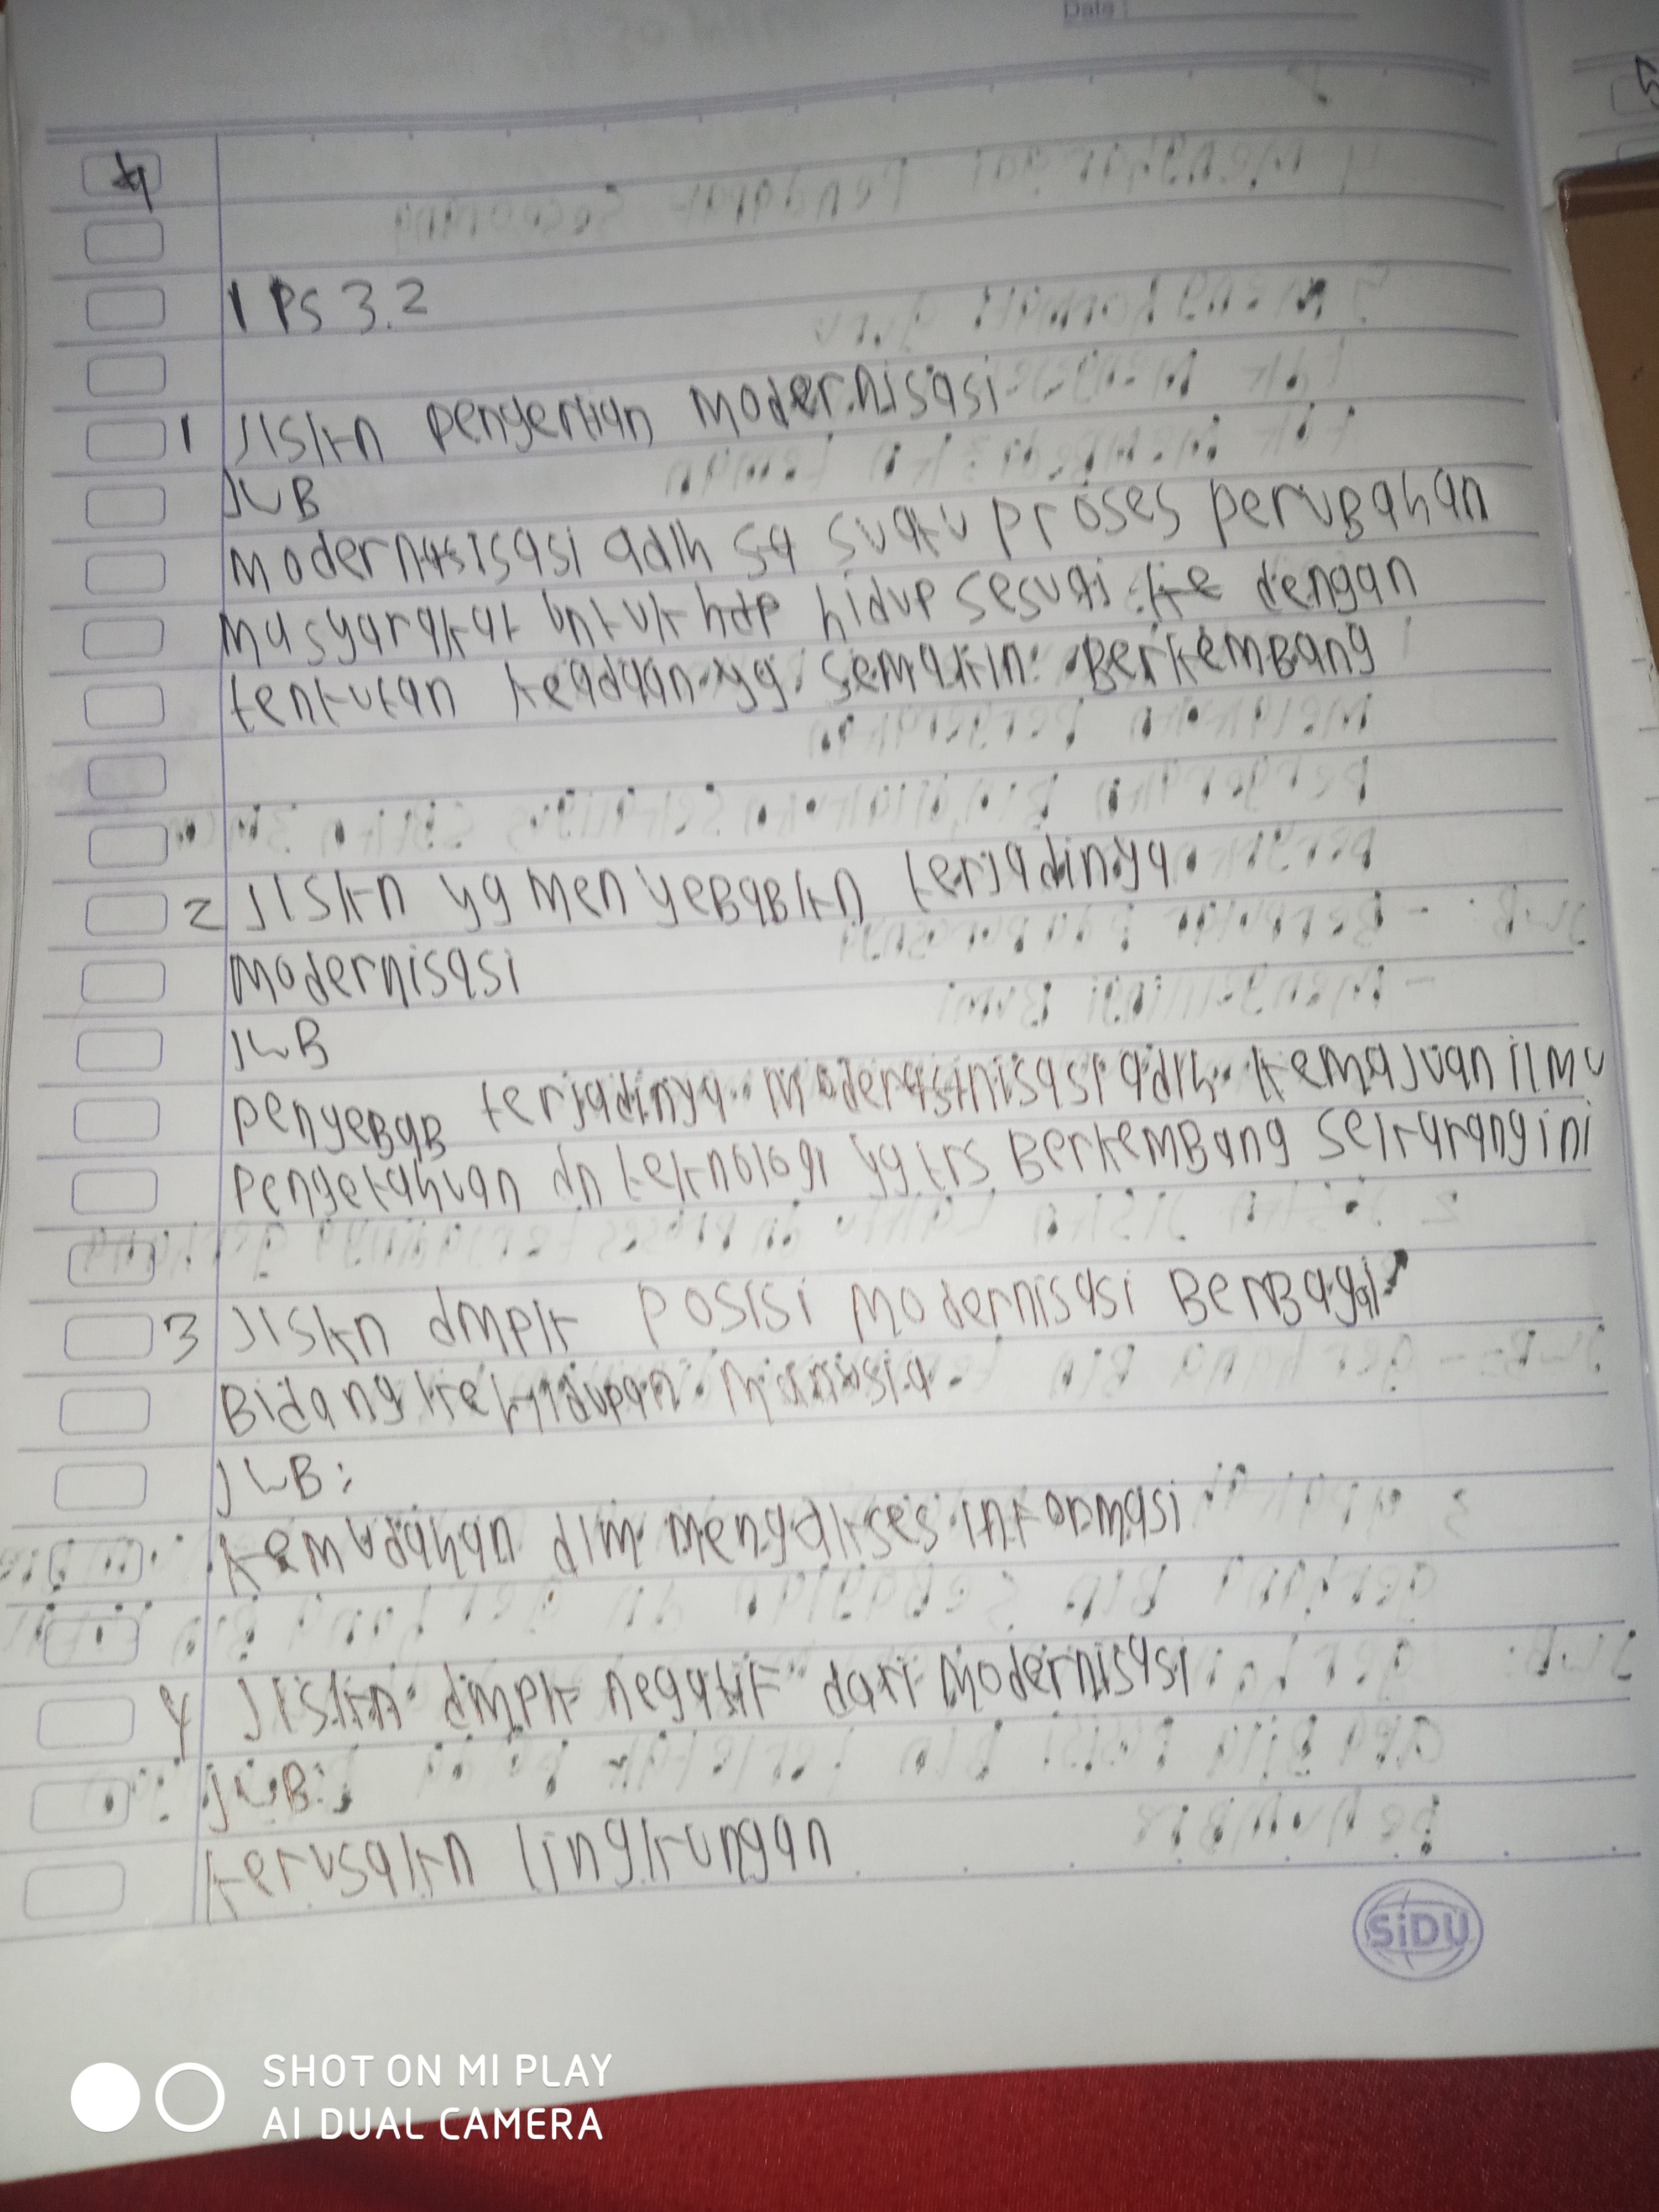 Date :
4
IPS 3.2
1 Jlskn pengertian modernisasi
JWB
modernisasi adlh suatu proses peruBahan
masyarakat untuk hdp hidup sesuai ke dengan
tentutan keadaan yg semakin BerkemBang
2 Jlskn yg menyeBaBkn terjadinya
modernisasi
JWB
penyeBaB terjadinya modernisasi adlh kemajuan ilmu
pengetahuan dn teknologi yg trs BerkemBang sekarang ini
3 Jlskn dmpk posisi modernisasi BerBagai
Bidang kehidupan manusia
JWB :
kemudahan dlm mengakses informasi
4 Jlskn dmpk negatif dari modernisasi
JWB :
kerusakn lingkungan
SiDU
SHOT ON MI PLAY
AI DUAL CAMERA